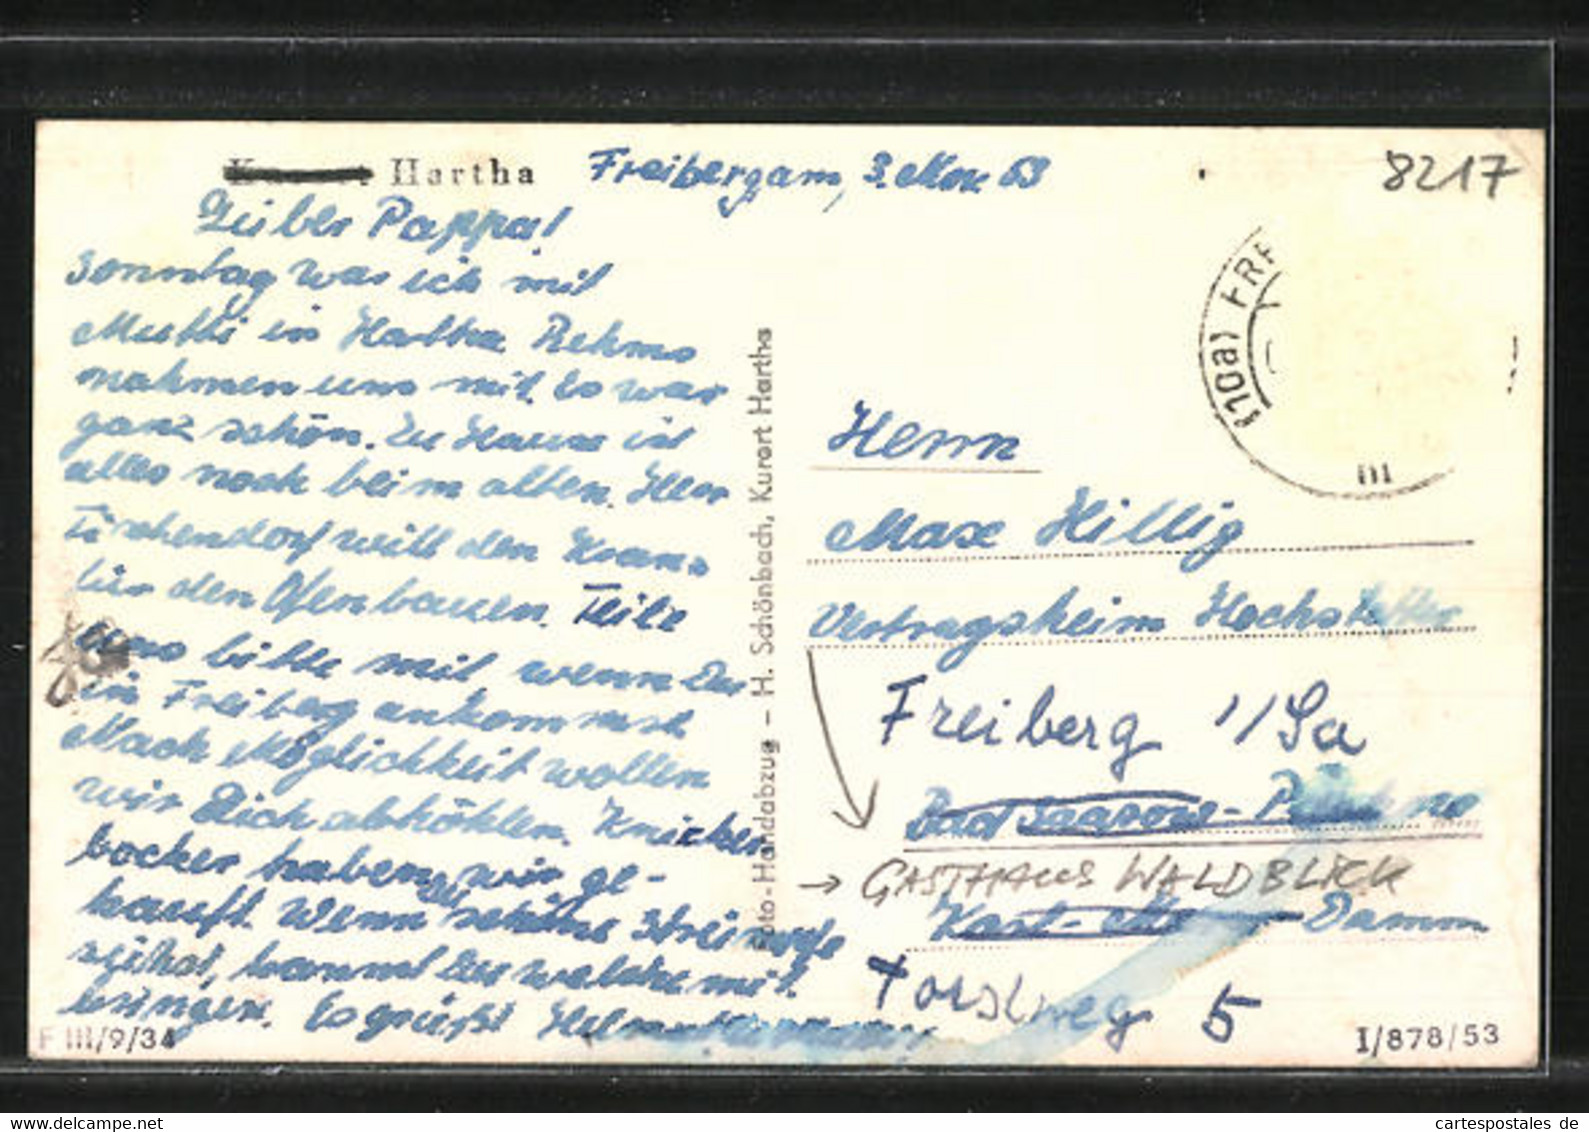 Hartha Freiberg am, 3. Nov 53
8217
Lieber Pappa!
Sonntag war ich mit
Mutti in Hartha. Rehms
nahmen uns mit. Es war
ganz schön. Zu Hause ist
alles noch beim alten. Herr
Tischendorf will den Kranz
für den Ofen bauen. Teile
uns bitte mit wenn Du
in Freiberg ankommst
Nach Möglichkeit wollen
wir Dich abhohlen. Knicker
bocker haben wir ge-
kauft. Wenn Du schöne
zeit hast, kannst Du welche mit
bringen. Es grüßt
F III/9/34
Foto-Handabzug – H. Schönbach, Kurort Hartha
(10a) FRE
III
Herrn
Max Hillig
Vertragsheim
Freiberg i/Sa
Bad Saarow-
→ GASTHAUS WALDBLICK
Damm
Forstweg 5
I/878/53
cartespostales de